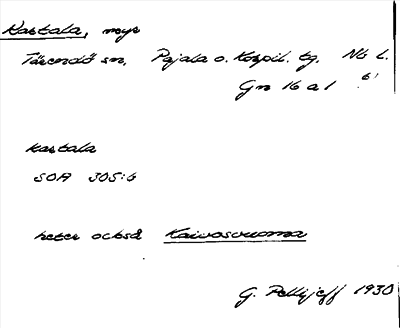 Kartala, myr
Tärendö sn, Pajala o. Korpil. tg. Nb l.
Gn 16 a 1
kartala
SOA 305:6
heter också Kaivosvuoma
G. Pellijeff 1930